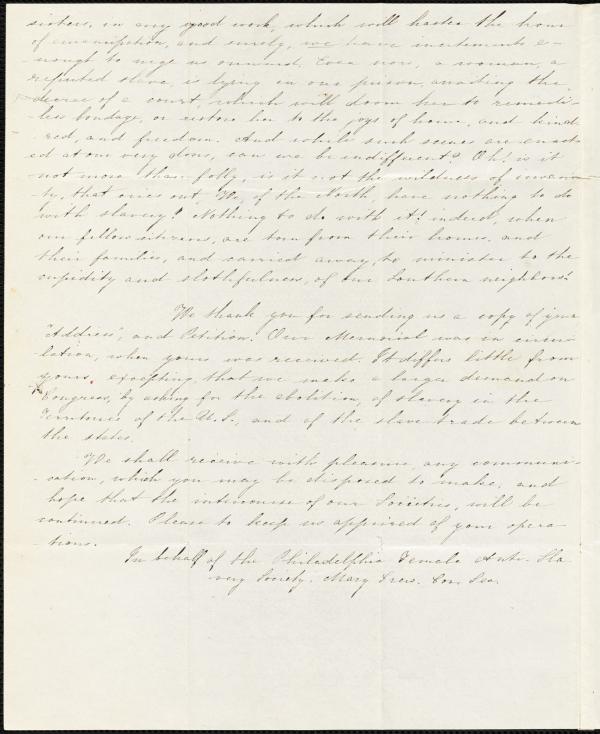 sisters, in any good work, which will hasten the hour
of emancipation, and surely, we have incitements e-
-nough to urge us onward. Even now, a woman, a
reputed slave, is lying in our prison, awaiting the
decree of a court, which will doom her to remedi-
less bondage, or restore her to the joys of home, and kind
-red, and freedom. And while such scenes are enact-
ed at our very doors, can we be indifferent? Oh! is it
not more than folly, is it not the wildness of
that cries out, We, of the North, have nothing to do
with slavery! Nothing to do with it! indeed, when
our fellow citizens, are torn from their homes and
their families, and carried away, to minister to the
cupidity and slothfulness, of our Southern neighbors!
We thank you for sending us a copy of your
"Address", and Petition. Our Memorial was in circu-
lation, when yours was received. It differs little from
yours, excepting that we make a larger demand on
Congress, by asking for the abolition, of slavery in the
Territories of the U.S., and of the slave trade between
the states.
We shall receive with pleasure, any communi-
-cation, which you may be disposed to make, and
hope that the intercourse of our Societies, will be
continued. Please to keep us apprised of your opera-
-tions.
In behalf of the Philadelphia Female Anti-Sla
very Society. Mary Grew. Cor. Sec.